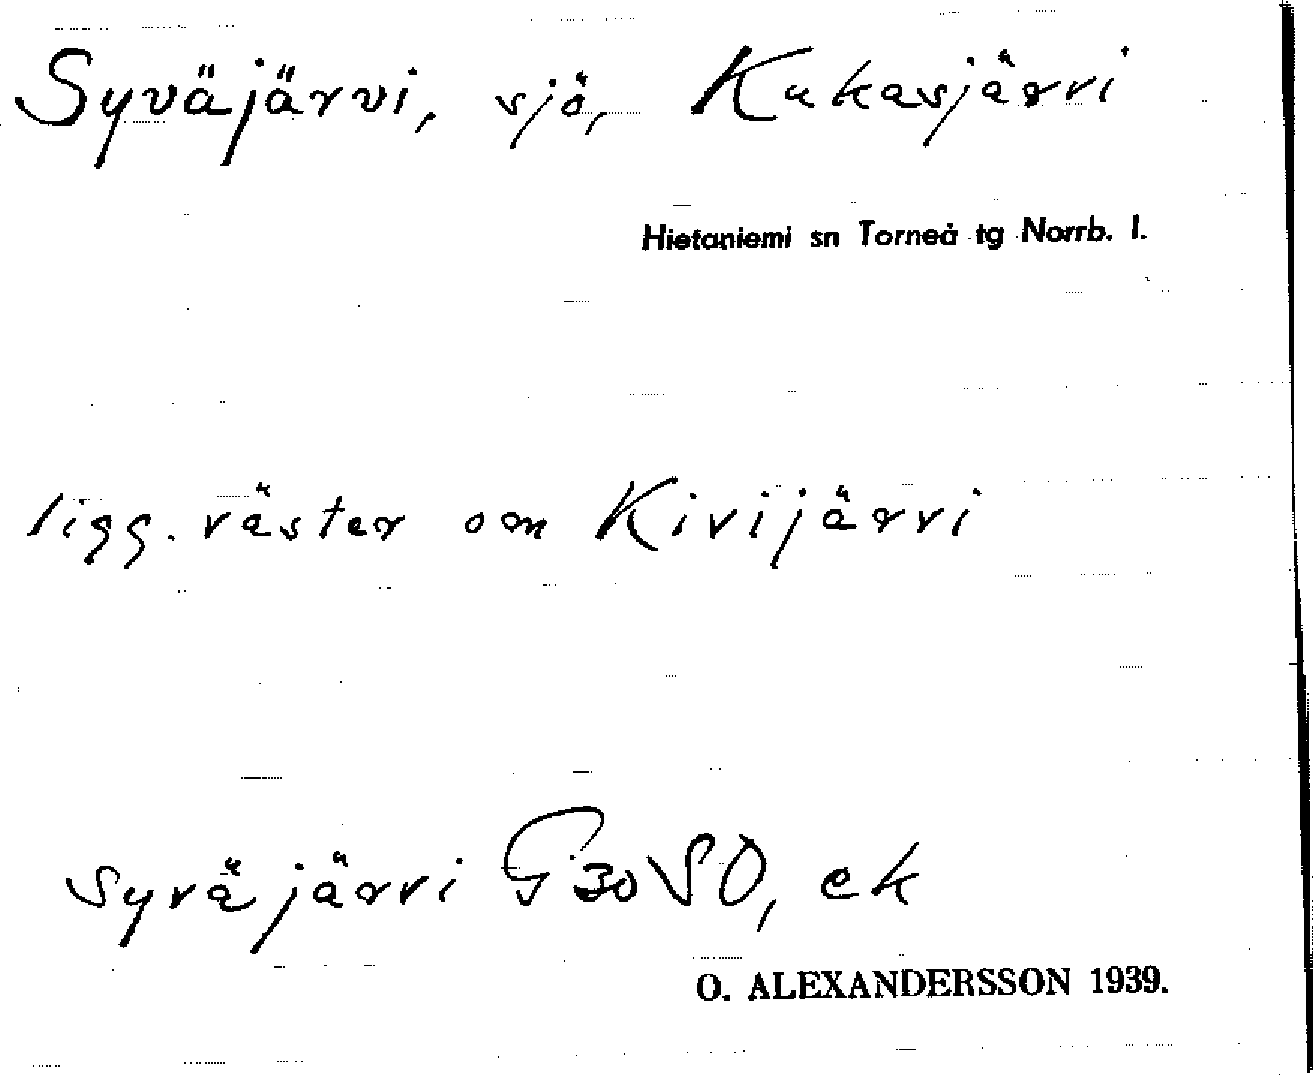 Syväjärvi, sjö, Kukasjärvi
Hietaniemi sn Torneå tg Norrb. l.
ligg. väster om Kivijärvi
syväjärvi G 30 SO, ek
O. ALEXANDERSSON 1939.